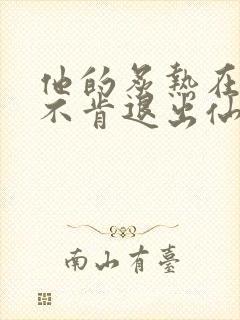 他的炙熱在
不肯退出仙
南山有臺